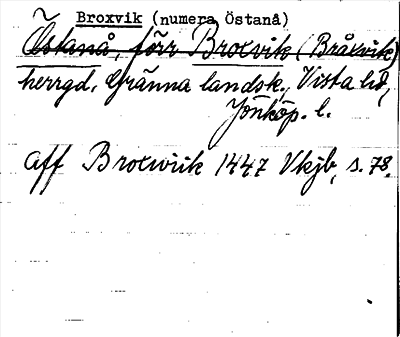 Broxvik (numera Östanå)
Östanå, förr Brocvik (Bråxvik)
herrgd, Gränna landsk., Vista hd,
Jönköp. l.
aff Brocwiik 1447 Vkjb, s. 78.